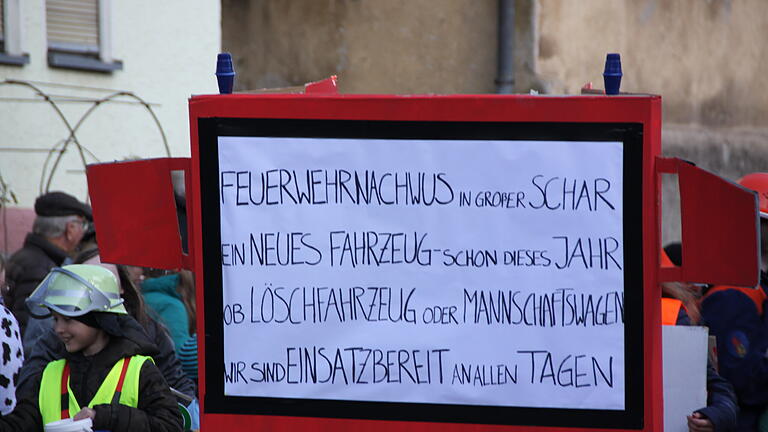 FEUERWEHRNACHWUS IN GROßER SCHAR
EIN NEUES FAHRZEUG-SCHON DIESES JAHR
OB LÖSCHFAHRZEUG ODER MANNSCHAFTSWAGEN
WIR SIND EINSATZBEREIT AN ALLEN TAGEN